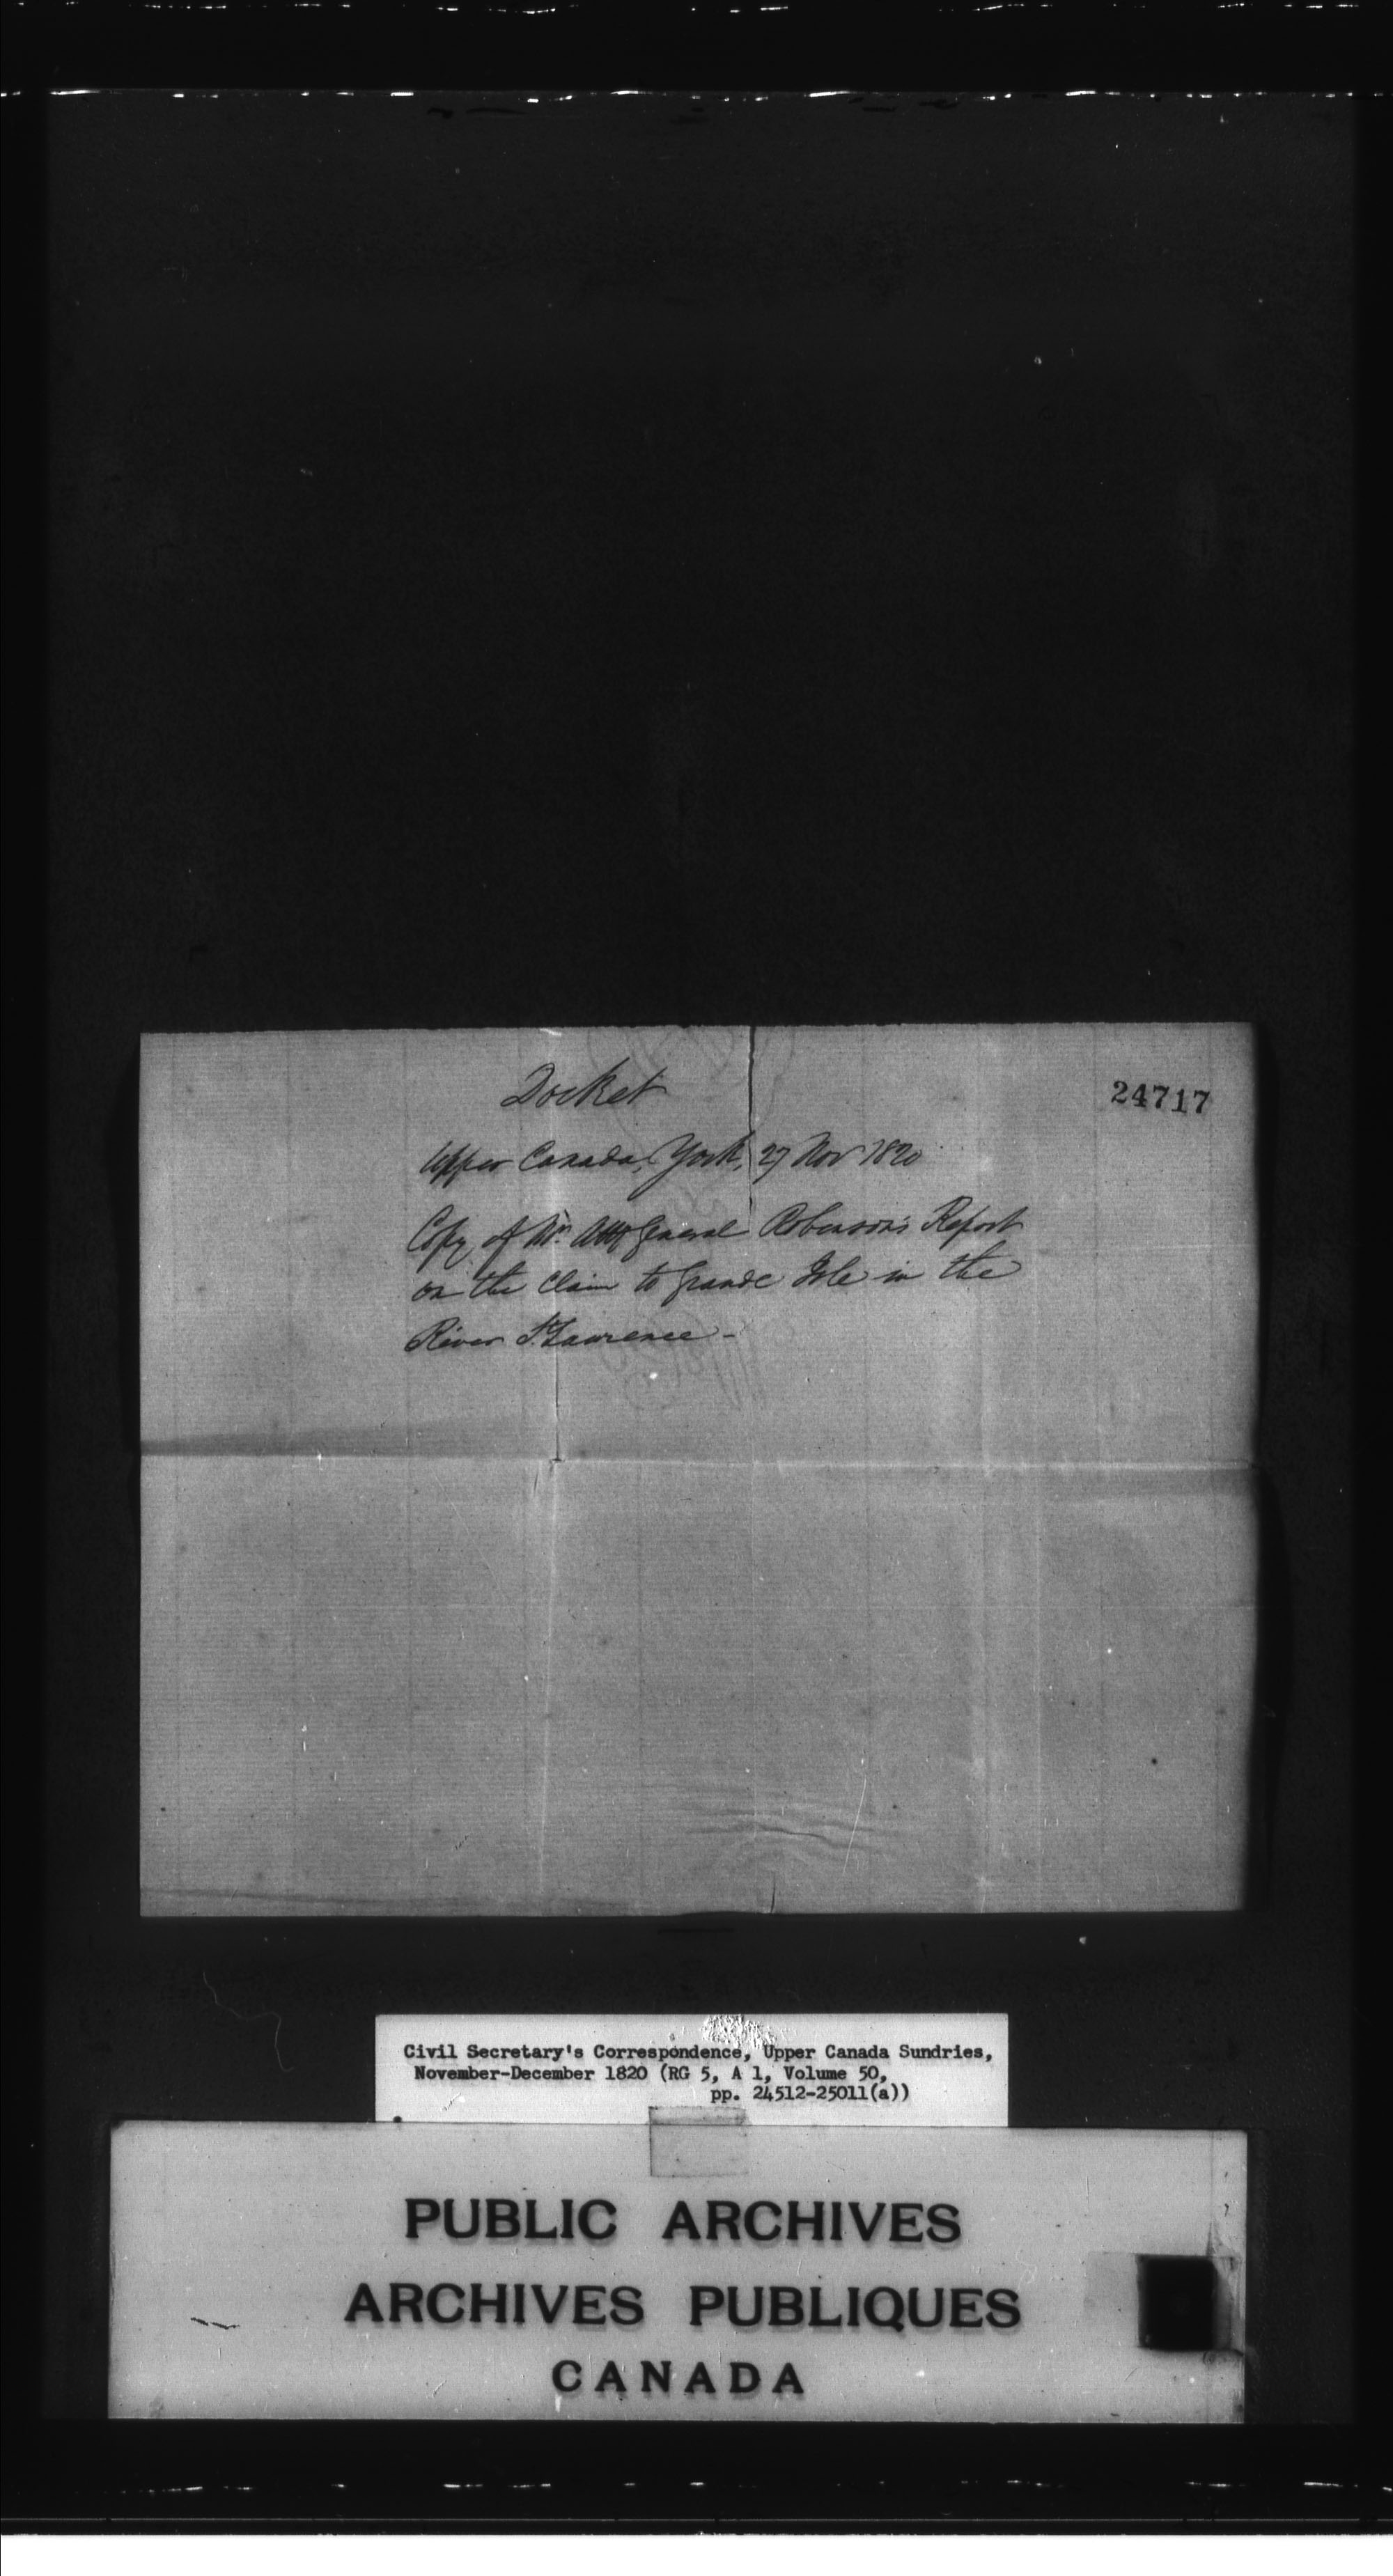 Docket
24717
Upper Canada, York, 27 Nov 1820
Copy of Mr. Atty General Robinson's Report
on the Claim to Grande Isle in the
River St. Lawrence -
Civil Secretary's Correspondence, Upper Canada Sundries,
November-December 1820 (RG 5, A 1, Volume 50,
pp. 24512-25011(a))
PUBLIC ARCHIVES
ARCHIVES PUBLIQUES
CANADA